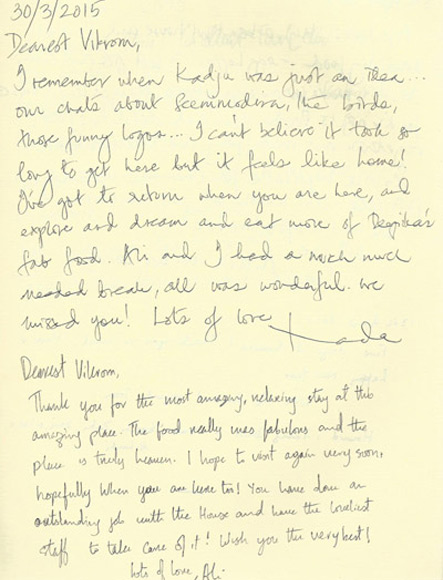 30/3/2015
Dearest Vikrom,
I remember when Kadju was just an idea...
our chats about the birds,
those funny logos... I can't believe it took so
long to get here but it feels like home!
I've got to return when you are here, and
explore and dream and eat more of
fab food. Ali and I had a much much
needed break, all was wonderful. We
missed you! Lots of love
Dearest Vikrom,
Thank you for the most amazing, relaxing stay at this
amazing place. The food really was fabulous and the
place is truly heaven. I hope to visit again very soon,
hopefully when you are here too! You have done an
outstanding job with the House and have the loveliest
staff to take care of it! Wish you the very best!
Lots of love, Ali